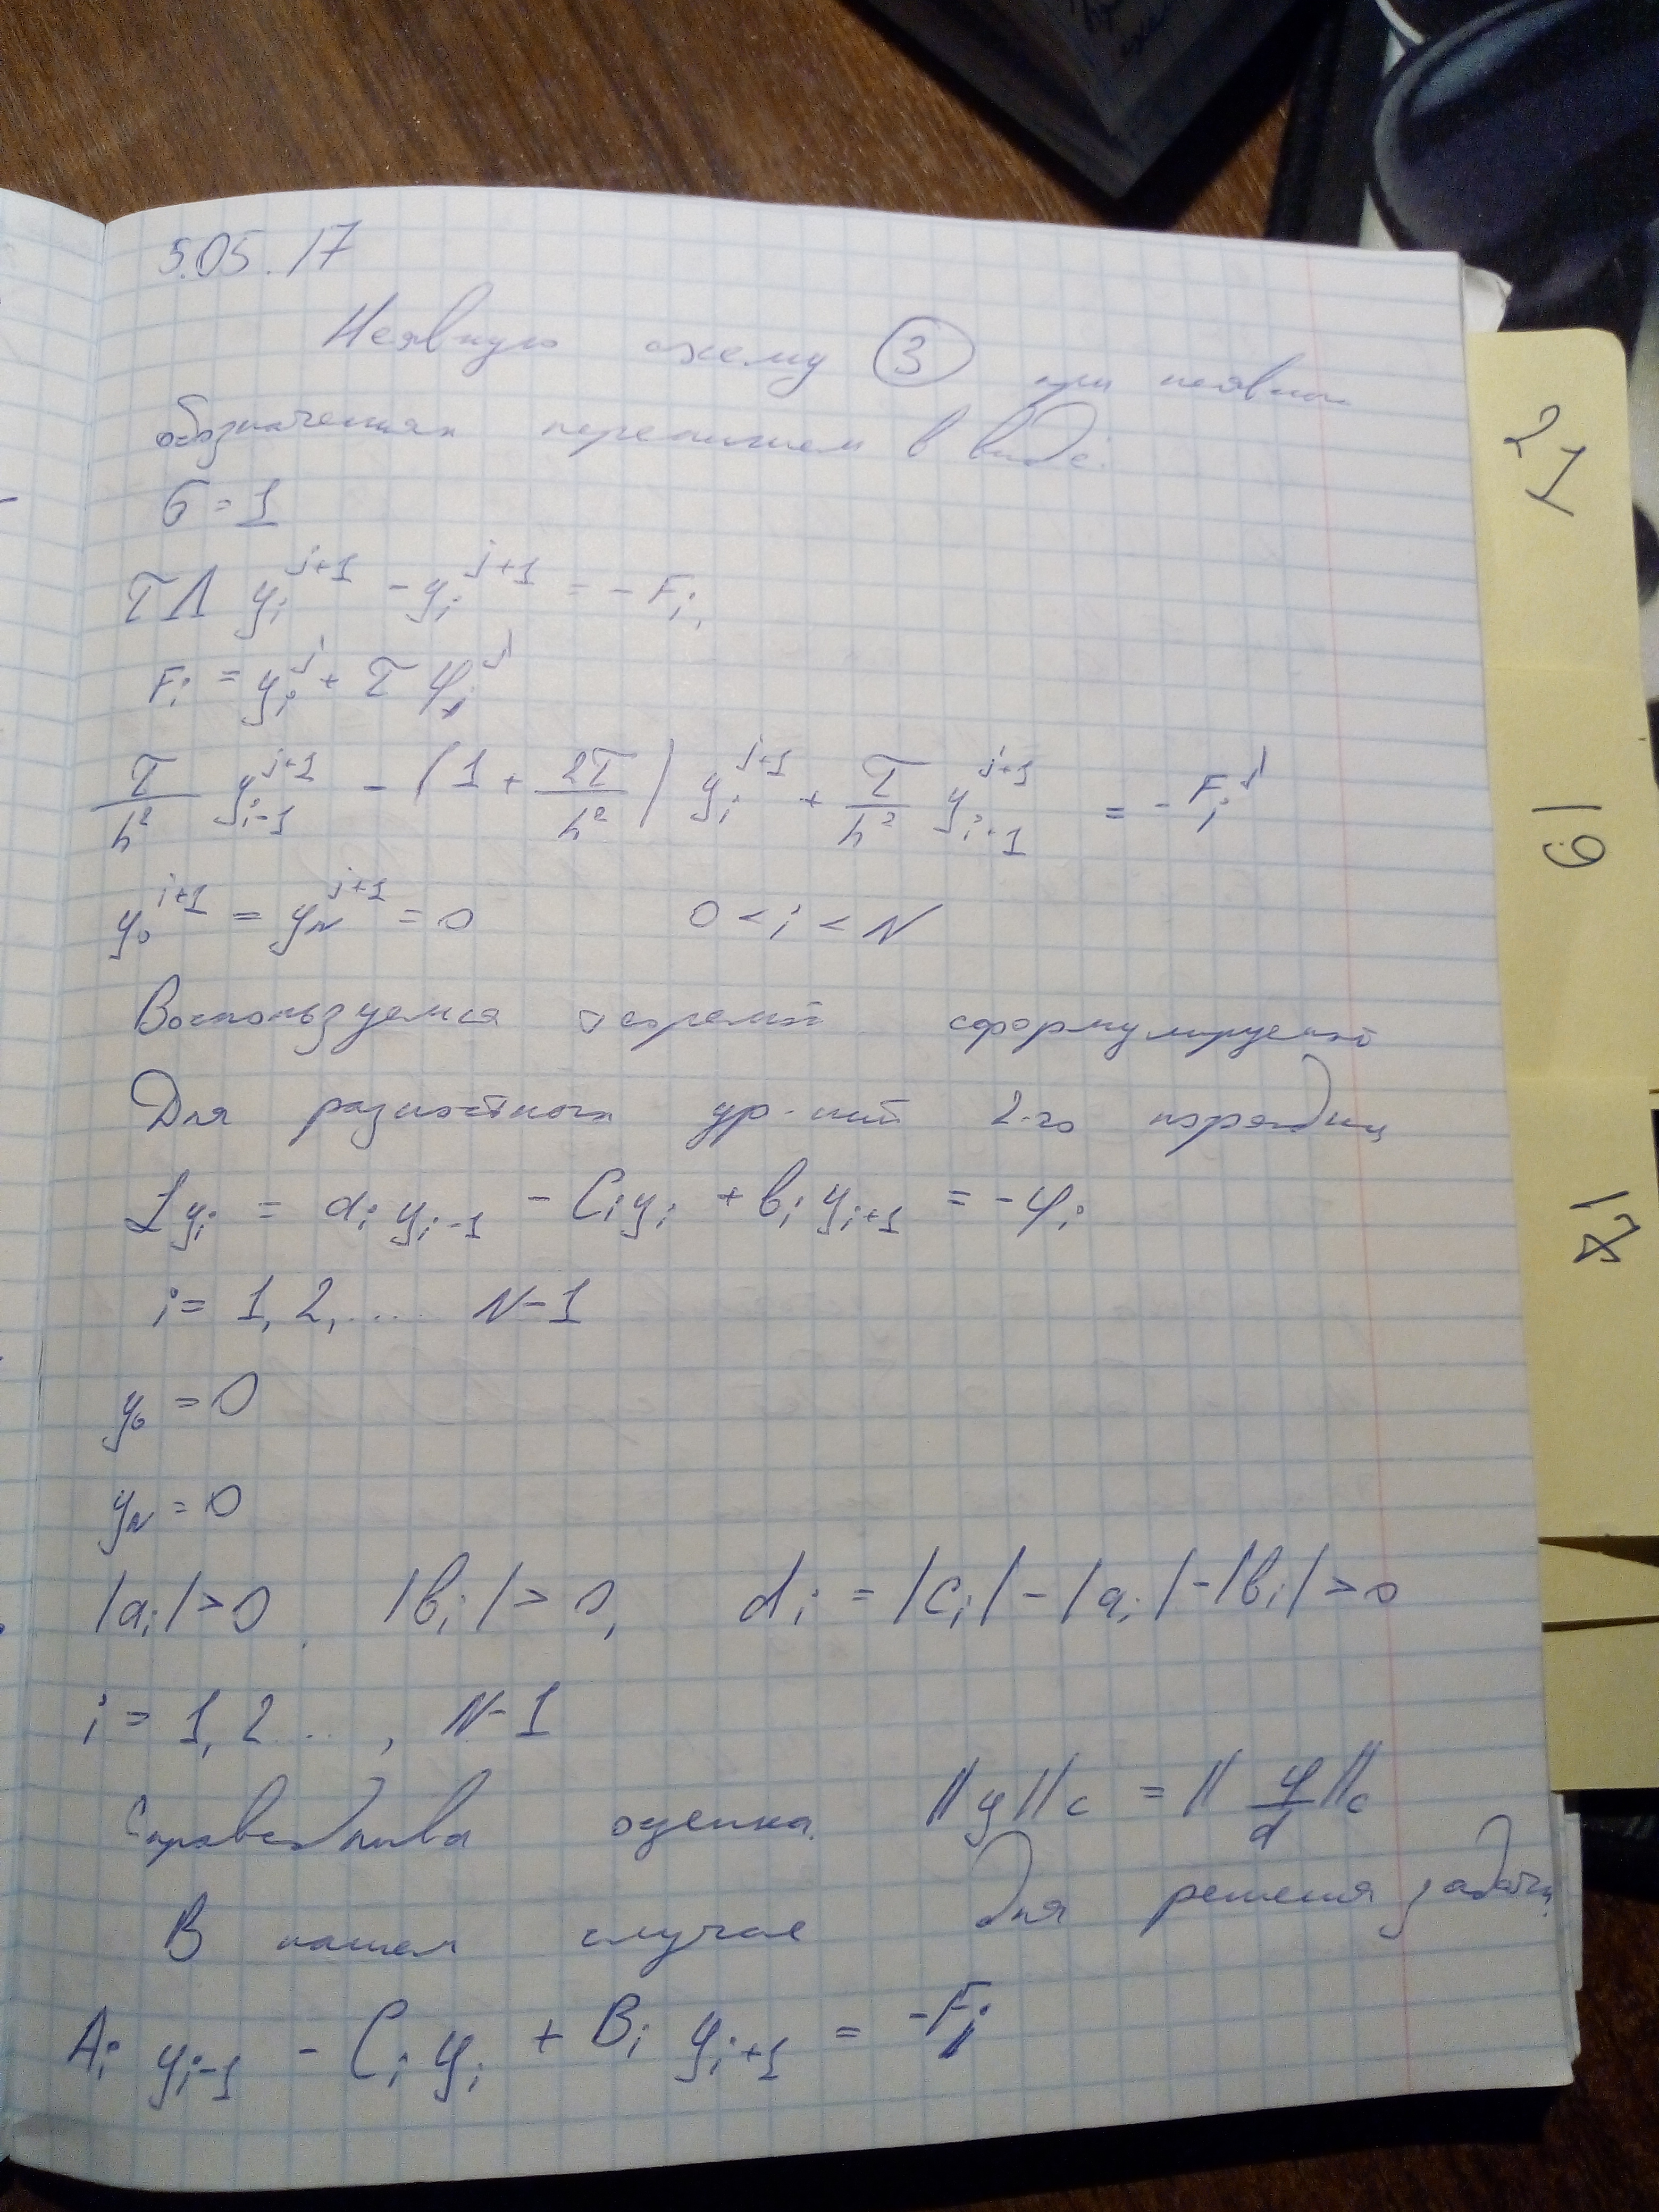 5.05.17
Неявную схему (3) при неявных
обозначениях перепишем в виде:
σ = 1
τΛ y_i^{j+1} - y_i^{j+1} = - F_i,
F_i = y_i^j + τ φ_i^j
τ/h² y_{i-1}^{j+1} - (1 + 2τ/h²) y_i^{j+1} + τ/h² y_{i+1}^{j+1} = - F_i^j
y_0^{j+1} = y_N^{j+1} = 0 0 < i < N
Воспользуемся теоремой сформулируемой
Для разностного ур-ний 2-го порядка
L y_i = a_i y_{i-1} - C_i y_i + b_i y_{i+1} = - φ_i
i = 1, 2, .... N-1
y_0 = 0
y_N = 0
|a_i| > 0, |b_i| > 0, d_i = |c_i| - |a_i| - |b_i| > 0
i = 1, 2 ..., N-1
Справедлива оценка. ||y||_c = || φ/d ||_c
В нашем случае для решения задачи
A_i y_{i-1} - C_i y_i + B_i y_{i+1} = -F_i
21
19